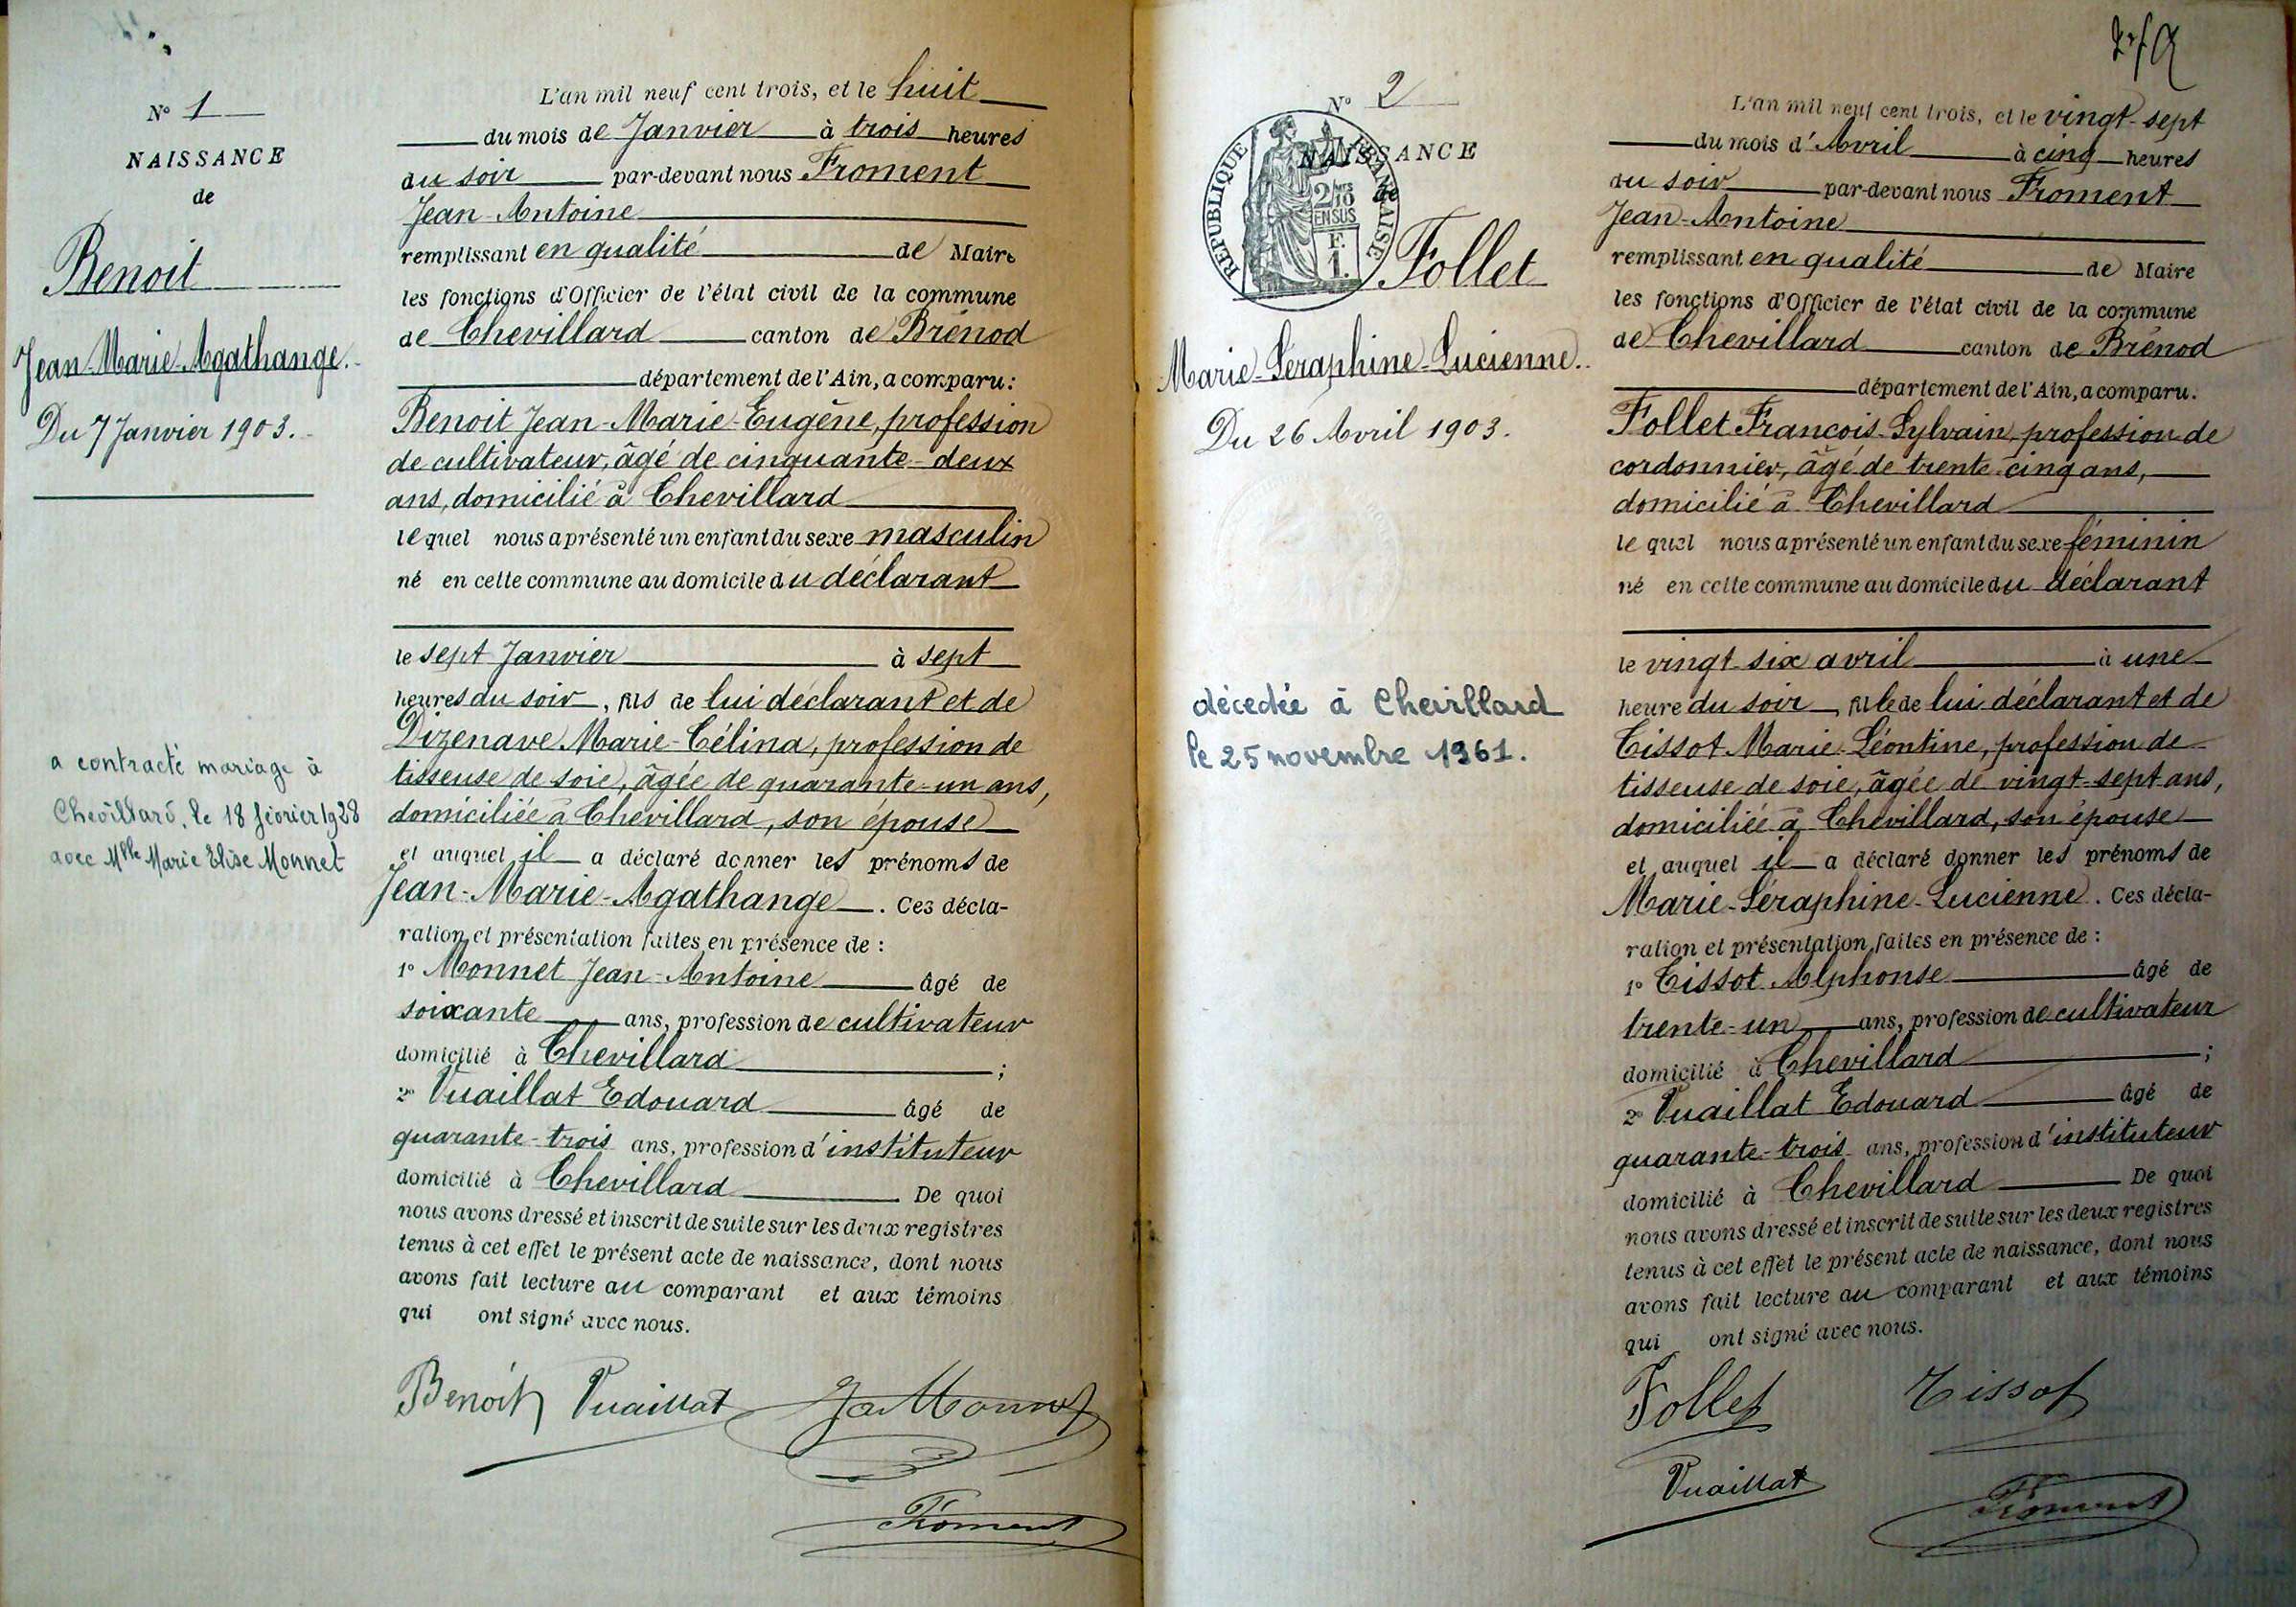 N° 1
NAISSANCE
de
Benoit
Jean-Marie-Agathange.
Du 7 Janvier 1903.
a contracté mariage à
Chevillard, le 18 février 1928
avec Mlle Marie Elise Monnet
L'an mil neuf cent trois, et le huit
du mois de Janvier à trois heures
du soir par-devant nous Froment
Jean-Antoine
remplissant en qualité de Maire
les fonctions d'Officier de l'état civil de la commune
de Chevillard canton de Brénod
département de l'Ain, a comparu :
Benoit Jean-Marie-Eugène, profession
de cultivateur, âgé de cinquante-deux
ans, domicilié à Chevillard
lequel nous a présenté un enfant du sexe masculin
né en cette commune au domicile du déclarant
le sept Janvier à sept
heures du soir, fils de lui déclarant et de
Dizenave Marie-Célina, profession de
tisseuse de soie, âgée de quarante-un ans,
domiciliée à Chevillard, son épouse
et auquel il a déclaré donner les prénoms de
Jean-Marie-Agathange. Ces décla-
ration et présentation faites en présence de :
1° Monnet Jean-Antoine âgé de
soixante ans, profession de cultivateur
domicilié à Chevillard ;
2° Vuaillat Edouard âgé de
quarante-trois ans, profession d'instituteur
domicilié à Chevillard De quoi
nous avons dressé et inscrit de suite sur les deux registres
tenus à cet effet le présent acte de naissance, dont nous
avons fait lecture au comparant et aux témoins
qui ont signé avec nous.
Benoit Vuaillat Ja Monnet
Froment
N° 2
NAISSANCE
de
REPUBLIQUE FRANCAISE
2/10
EN SUS
F.
1.
Follet
Marie-Séraphine-Lucienne.
Du 26 Avril 1903.
décedée à Chevillard
le 25 novembre 1961.
L'an mil neuf cent trois, et le vingt-sept
du mois d'Avril à cinq heures
du soir par-devant nous Froment
Jean-Antoine
remplissant en qualité de Maire
les fonctions d'Officier de l'état civil de la commune
de Chevillard canton de Brénod
département de l'Ain, a comparu.
Follet Francois-Sylvain, profession de
cordonnier, âgé de trente-cinq ans,
domicilié à Chevillard
lequel nous a présenté un enfant du sexe féminin
né en cette commune au domicile du déclarant
le vingt-six avril à une
heure du soir, fille de lui déclarant et de
Tissot Marie-Léontine, profession de
tisseuse de soie, âgée de vingt-sept ans,
domiciliée à Chevillard, son épouse
et auquel il a déclaré donner les prénoms de
Marie-Séraphine-Lucienne. Ces décla-
ration et présentation faites en présence de :
1° Tissot Alphonse âgé de
trente-un ans, profession de cultivateur
domicilié à Chevillard ;
2° Vuaillat Edouard âgé de
quarante-trois ans, profession d'instituteur
domicilié à Chevillard De quoi
nous avons dressé et inscrit de suite sur les deux registres
tenus à cet effet le présent acte de naissance, dont nous
avons fait lecture au comparant et aux témoins
qui ont signé avec nous.
Follet Tissot
Vuaillat Froment